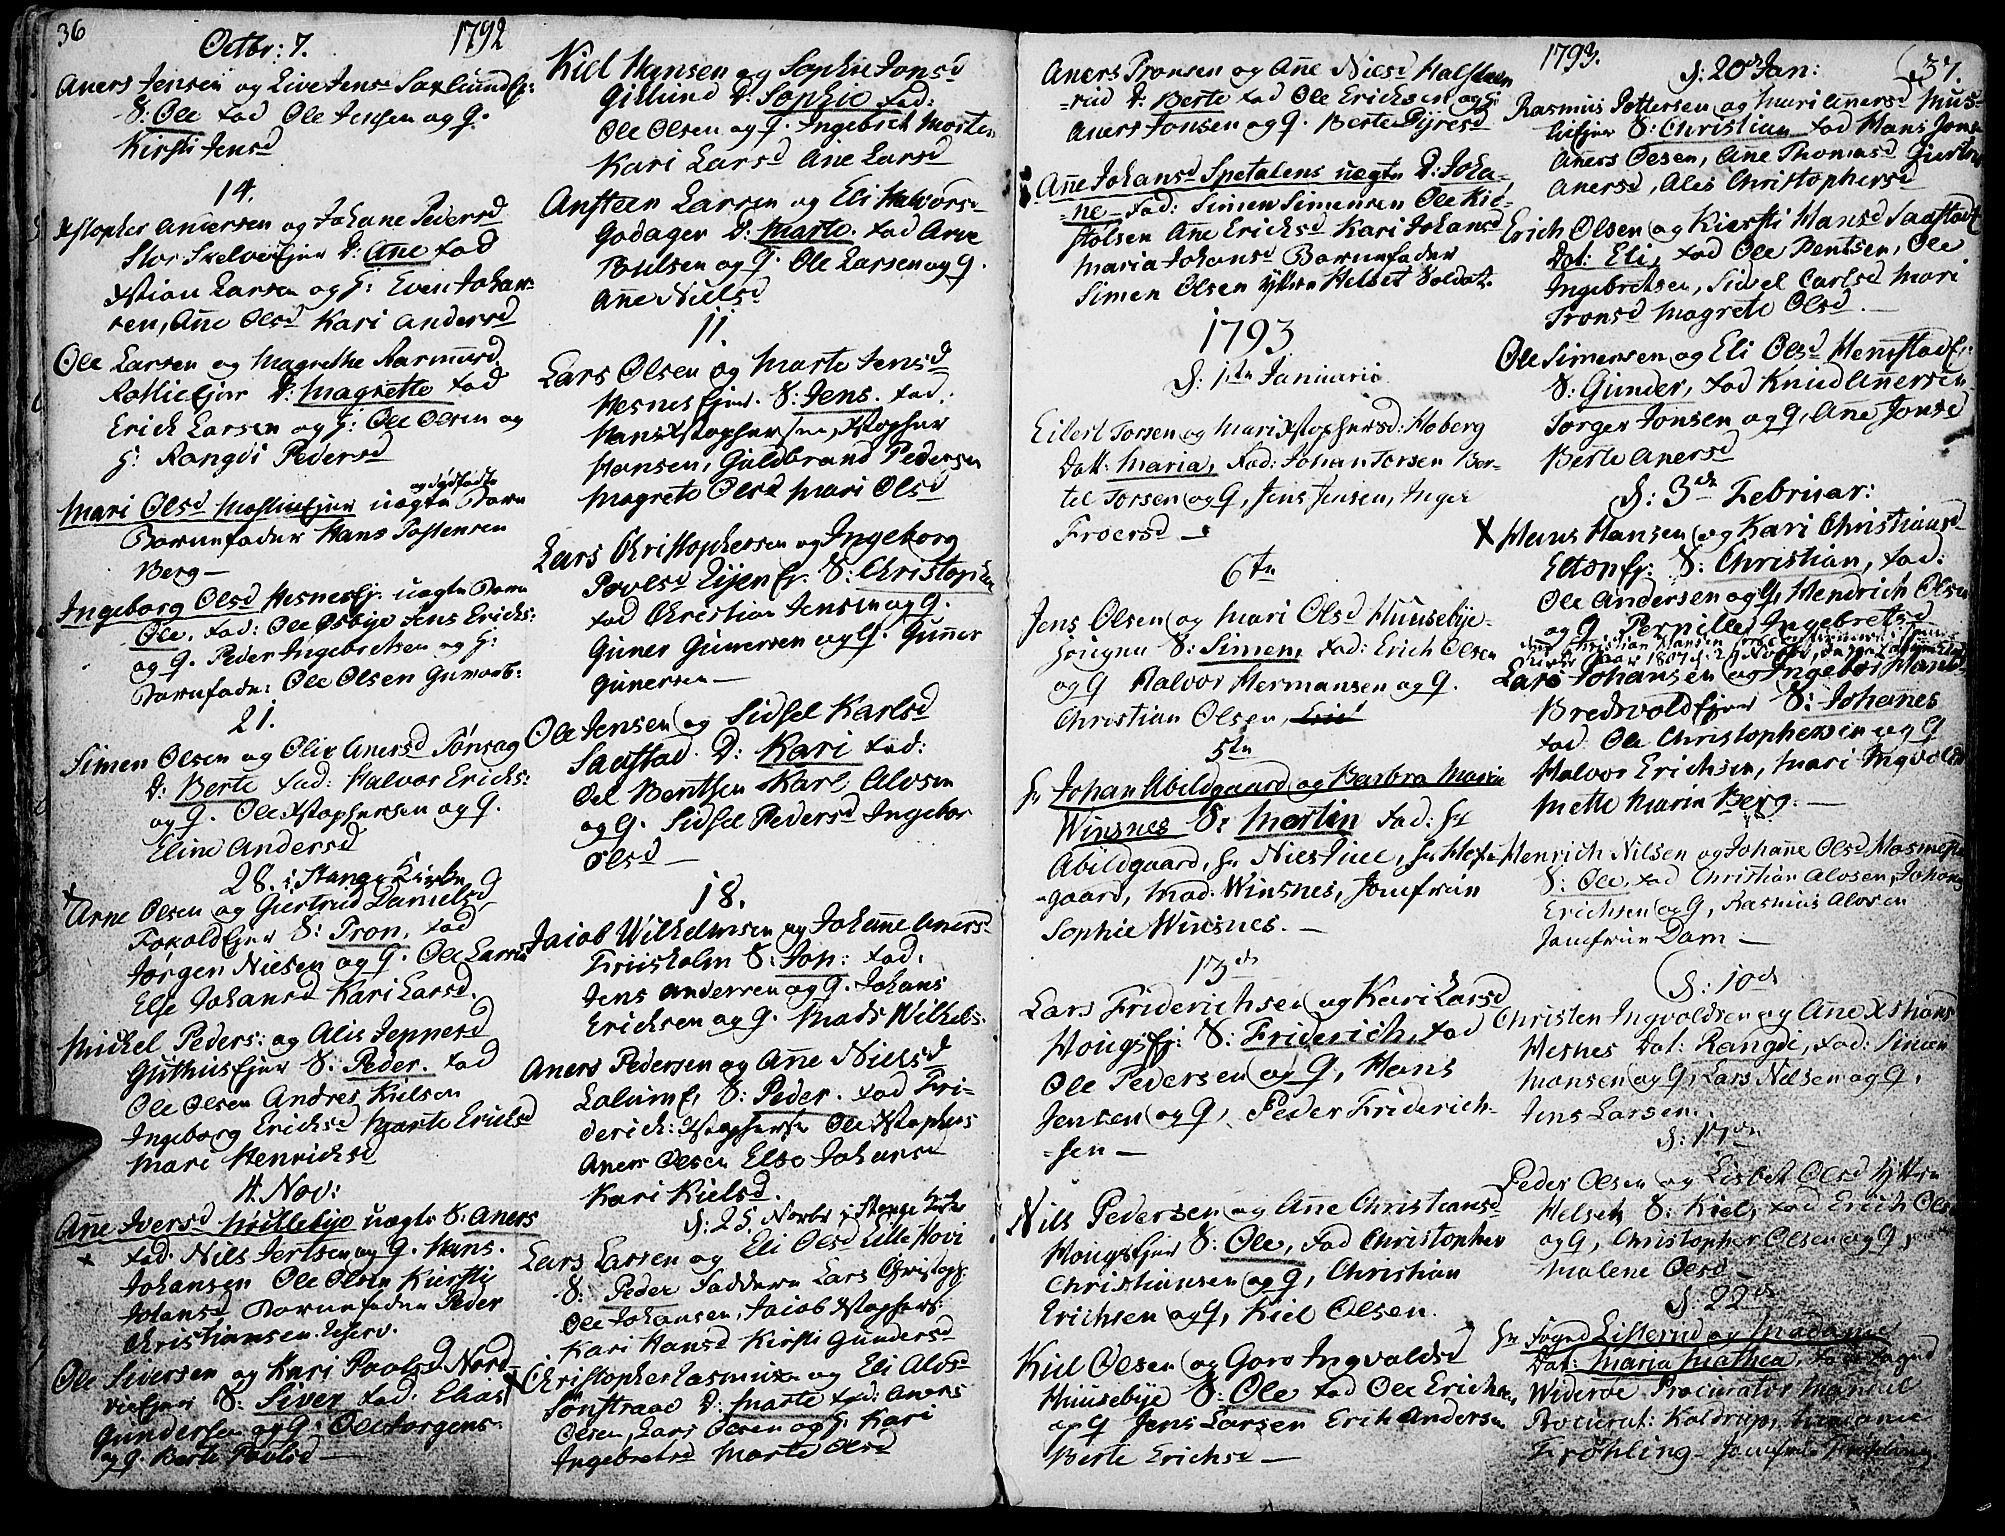 36
Octbr: 7. 1792
Aners Jensen og Live Jensd Saxlund Ej:
S: Ole fad Ole Jensen og G.
Kirsti Jensd
14.
Xstopher Andersen og Johane Pedersd
Stor Skelve Ejer D: Ane fad
Xstian Larsen og G: Even Johan-
sen, Ane Olsd Kari Andersd
Ole Larsen og Magrethe Rasmusd
Rothie Ejer D: Magrette fad
Erick Larsen og G: Ole Olsen og
G: Rangdi Pedersd
og dødfødt
Mari Olsd uægte Barn
Barnefader Hans Postensen
Berg -
Ingeborg Olsd Hesnes Ej. uægte Barn
Ole, fad: Ole Osbye Jens Ericks:
og G. Peder Ingebretsen og G:
Barnfade: Ole Olsen
21.
Simen Olsen og Oliv Anersd Tønsag
D: Berte fad: Halvor Ericks:
og G. Ole Xstophersen og G.
Eline Andersd
28. i Stange Kirke
Arne Olsen og Giertrud Danielsd
Ejer S: Tron, fad
Jørgen Nielsen og G. Ole Larsen
Else Johansd Kari Larsd.
Mickel Peders: og Alis Jeppesd
Guthus Ejer S: Peder. fad
Ole Olsen Andres Kielsen
Ingeborg Ericksd Marte Ericksd
Mari Henricksd
4. Nov:
Ane Iversd uægte S: Aners
fad. Nils Jertsen og G. Hans.
Johansen Ole Olsen Kiersti
Johansd Barnefader Peder
Christiansen. Reserv.
Ole Siversen og Kari Poulsd Nord-
vie Ejer S: Siver fad: Elias
Gundersen og G. Ole Torgens:
og G. Berte Poulsd -
Kiel Hansen og Sophie Jonsd
Gillund D: Sophie fad:
Ole Olsen og G. Ingebret Morten
Kari Larsd Ane Larsd
Ansteen Larsen og Eli Halvorsd
Godager D: Marte. fad Arne
Poulsen og G. Ole Larsen og G.
Ane Nielsd
11.
Lars Olsen og Marte Jensd
Hesnes Ejer. S: Jens. fad:
Hans Xstophersen, Xstopher
Hansen, Guldbrand Pedersen
Magrete Olsd Mari Olsd
Lars Christophersen og Ingeborg
Povelsd Lijen Ej. S: Christopher
fad Christian Jensen og G.
Guner Gunersen og G. Guner
Gunersen -
Ole Jensen og Sidsel Karlsd
Saastad. D: Kari fad:
Oel Bentsen Karl Alvsen
og G. Sidsel Pedersd Ingebor
Olsd -
18.
Jacob Wilhelmsen og Johane Aners:
Friisholm S: Jon: fad:
Jens Andersen og G. Johans
Ericksen og G. Mads Wilhels:
Aners Pedersen og Ane Nielsd
Lalum Ej. S: Peder. fad Fri-
derich: Xstophersen Ole Xstophers
Aners Olsen Else Johansd
Kari Kielsd.
d: 25 Novbr i Stange Kirke
Lars Larsen og Eli Olsd Lille Hovi
S: Peder Faddere Lars Christoph:
Ole Johansen, Jacob Xstophers:
Kari Hansd Kirsti Gundersd
Christopher Rasmusen og Eli Alvs:
Sønstraae D: Marte fad: Aners
Olsen, Lars Olsen og G. Kari
Ingebretsd Marte Olsd
1793. 37.
Aners Tronsen og Ane Nielsd Halsteen
=rud D: Berte fad Ole Ericksen og G:
Aners Jonsen og G. Berte Syresd
Ane Johansd Spetalens uægte D: Joha-
=ne - fad: Simen Simensen Ole Kie-
stolsen Ane Ericksd Kari Johansd
Maria Johansd Barnefader
Simen Olsen Yttre Helset Soldat.
1793
d: 1ste Januarii
Eilert Torsen og Mari Xstophersd: Hoberg
Datt: Maria, Fad: Johan Torsen Ber-
tel Torsen og G, Jens Jensen, Inger
Froersd -
6te
Jens Olsen og Mari Olsd Huusebye-
S: Simen, fad: Erich Olsen
og G Halvor Hermansen og G.
Christian Olsen,
5te
Hr Johan Abildgaard og Barbra Maria
Winsnes S: Martin fad: Hr
Abildgaard, Hr Niels Juel, Hr
-gaard, Mad: Winsnes, Jomfruen
Sophie Winsnes. -
13de
Lars Friderichsen og Kari Larsd
Hougs Ej: S: Friderich, fad
Ole Pedersen og G, Hans
Jensen og G, Peder Friderich-
=sen -
Nils Pedersen og Ane Christiansd
Hougs Ejer S: Ole, fad Christopher
Christiansen og G, Christian
Erichsen og G, Kiel Olsen.
Kiel Olsen og Goro Ingvoldsd
Huusebye S: Ole fad Ole Erichsen,
og G Jens Larsen Erich Andersen
Berte Erichsd -
d: 20de Jan:
Rasmus Pettersen og Mari Anersd Mus-
lie Ejer S: Christian fad Hans Jonsen
Aners Oesen, Ane Thomasd Giertru
Anersd, Ales Christophersd
Erich Olsen og Kiersti Hansd Saastad
Dat: Eli, fad Ole Pentsen, Ole
Ingebretsen, Sidsel Carlsd Mari
Tronsd Magrete Olsd. -
Ole Simensen og Eli Olsd Hemstad Ej:
S: Gunder, fad Knud Anersen
Torger Jonsen og G, Ane Jonsd
Berte Anersd
d: 3de Februar:
X Hans Hansen og Kari Christiansd
Elton Ej. S: Christian, fad:
Ole Andersen og G, Hendrich Olsen
og G Pernille Ingebretsd
Lars Johansen og Ingebor Hansd
Bredvold Ejer S: Johanes
fad Ole Christophersen og G
Halvor Erichsen, Mari Ingvolds
Mette Marie Berg. -
Henrich Nilsen og Johane Olsd
S: Ole, fad Christian Alvsen, Johans
Erichsen og G, Rasmus Alvsen
Jomfrue Dam -
d: 10de
Christen Ingvoldsen og Ane Xstians
Hesnes Dat: Rangdi, fad: Simen
Monsen og G, Lars Nilsen og G,
Jens Larsen.
d: 17de
Peder Olsen og Lisbet Olsd Yttre
Helset S: Kiel, fad Erich Olsen
og G, Christopher Olsen og G,
Malene Olsd -
d: 22de
Hr Foged Listerud og Madame
Dat: Maria Mathea, fad: Foged
Wideröe Procurator Mandal
Procurat: Koldrup, Madame
Fröhling - Jomfrue